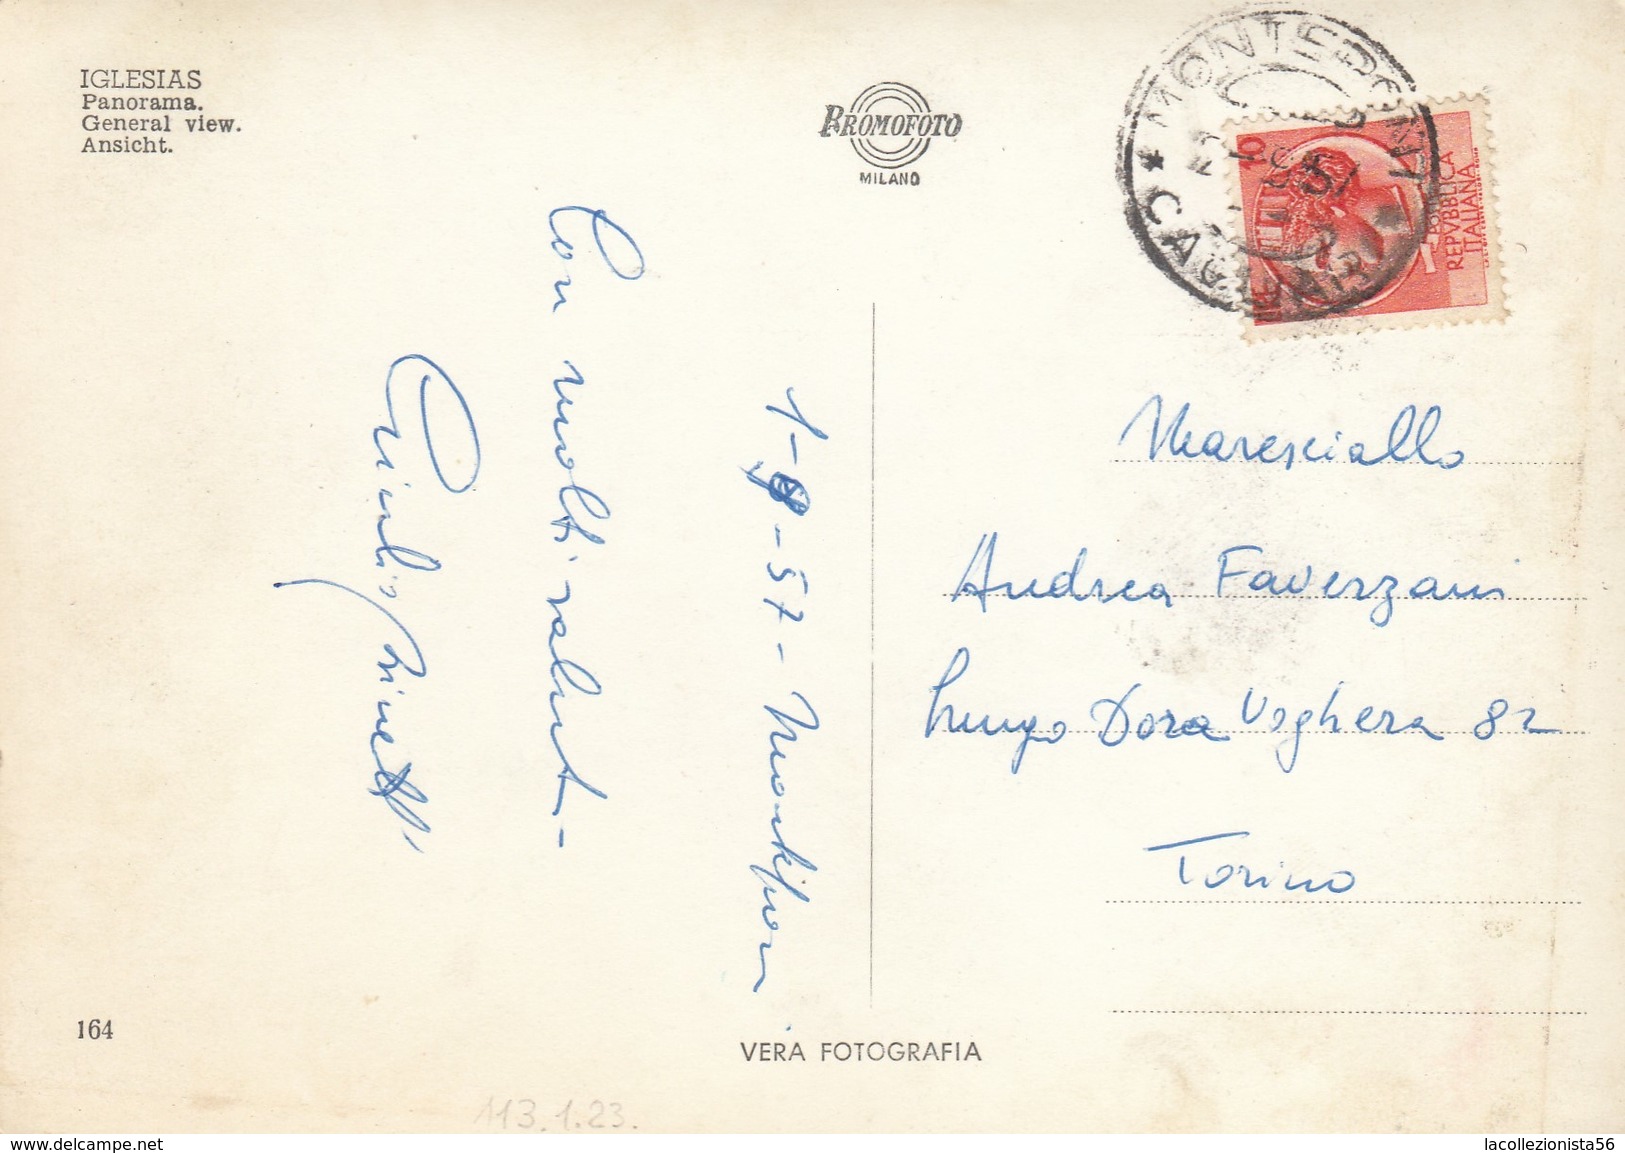 IGLESIAS
Panorama.
General view.
Ansicht.
BROMOFOTO
MILANO
MONTEPONI
* CAGLIARI *
REPVBBLICA
ITALIANA
1-8-57 - Monteponi
Con molti saluti -
Maresciallo
Andrea Faverzani
Lungo Dora Voghera 82
Torino
164
VERA FOTOGRAFIA
113.1.23.
delcampe.net
lacollezionista56